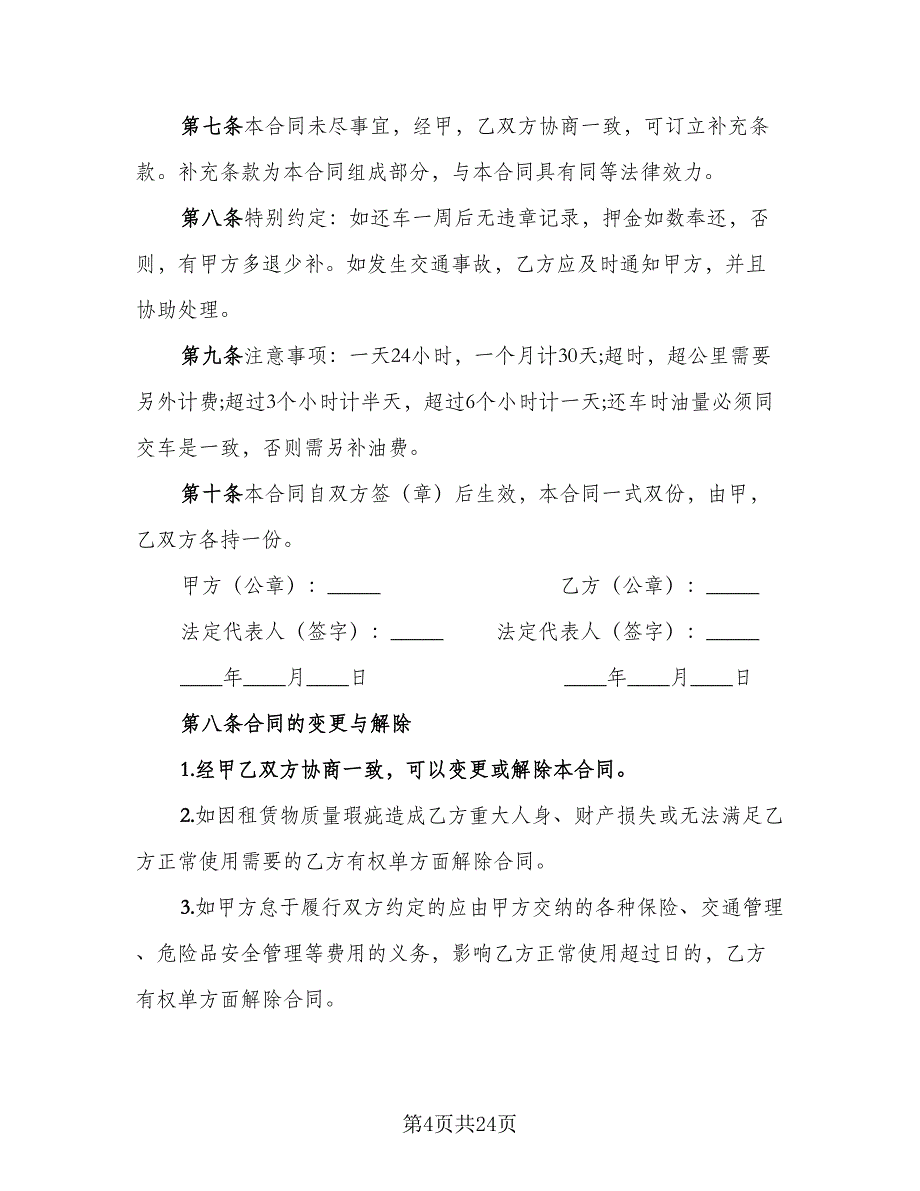 第七条本合同未尽事宜，经甲，乙双方协商一致，可订立补充条
款。补充条款为本合同组成部分，与本合同具有同等法律效力。
第八条特别约定：如还车一周后无违章记录，押金如数奉还，否
则，有甲方多退少补。如发生交通事故，乙方应及时通知甲方，并且
协助处理。
第九条注意事项：一天24小时，一个月计30天;超时，超公里需要
另外计费;超过3个小时计半天，超过6个小时计一天;还车时油量必须同
交车是一致，否则需另补油费。
第十条本合同自双方签（章）后生效，本合同一式双份，由甲，
乙双方各持一份。
甲方（公章）：_____ 乙方（公章）：_____
法定代表人（签字）：_____ 法定代表人（签字）：_____
____年____月____日 ____年____月____日
第八条合同的变更与解除
1.经甲乙双方协商一致，可以变更或解除本合同。
2.如因租赁物质量瑕疵造成乙方重大人身、财产损失或无法满足乙
方正常使用需要的乙方有权单方面解除合同。
3.如甲方怠于履行双方约定的应由甲方交纳的各种保险、交通管理
、危险品安全管理等费用的义务，影响乙方正常使用超过日的，乙方
有权单方面解除合同。
第4页共24页